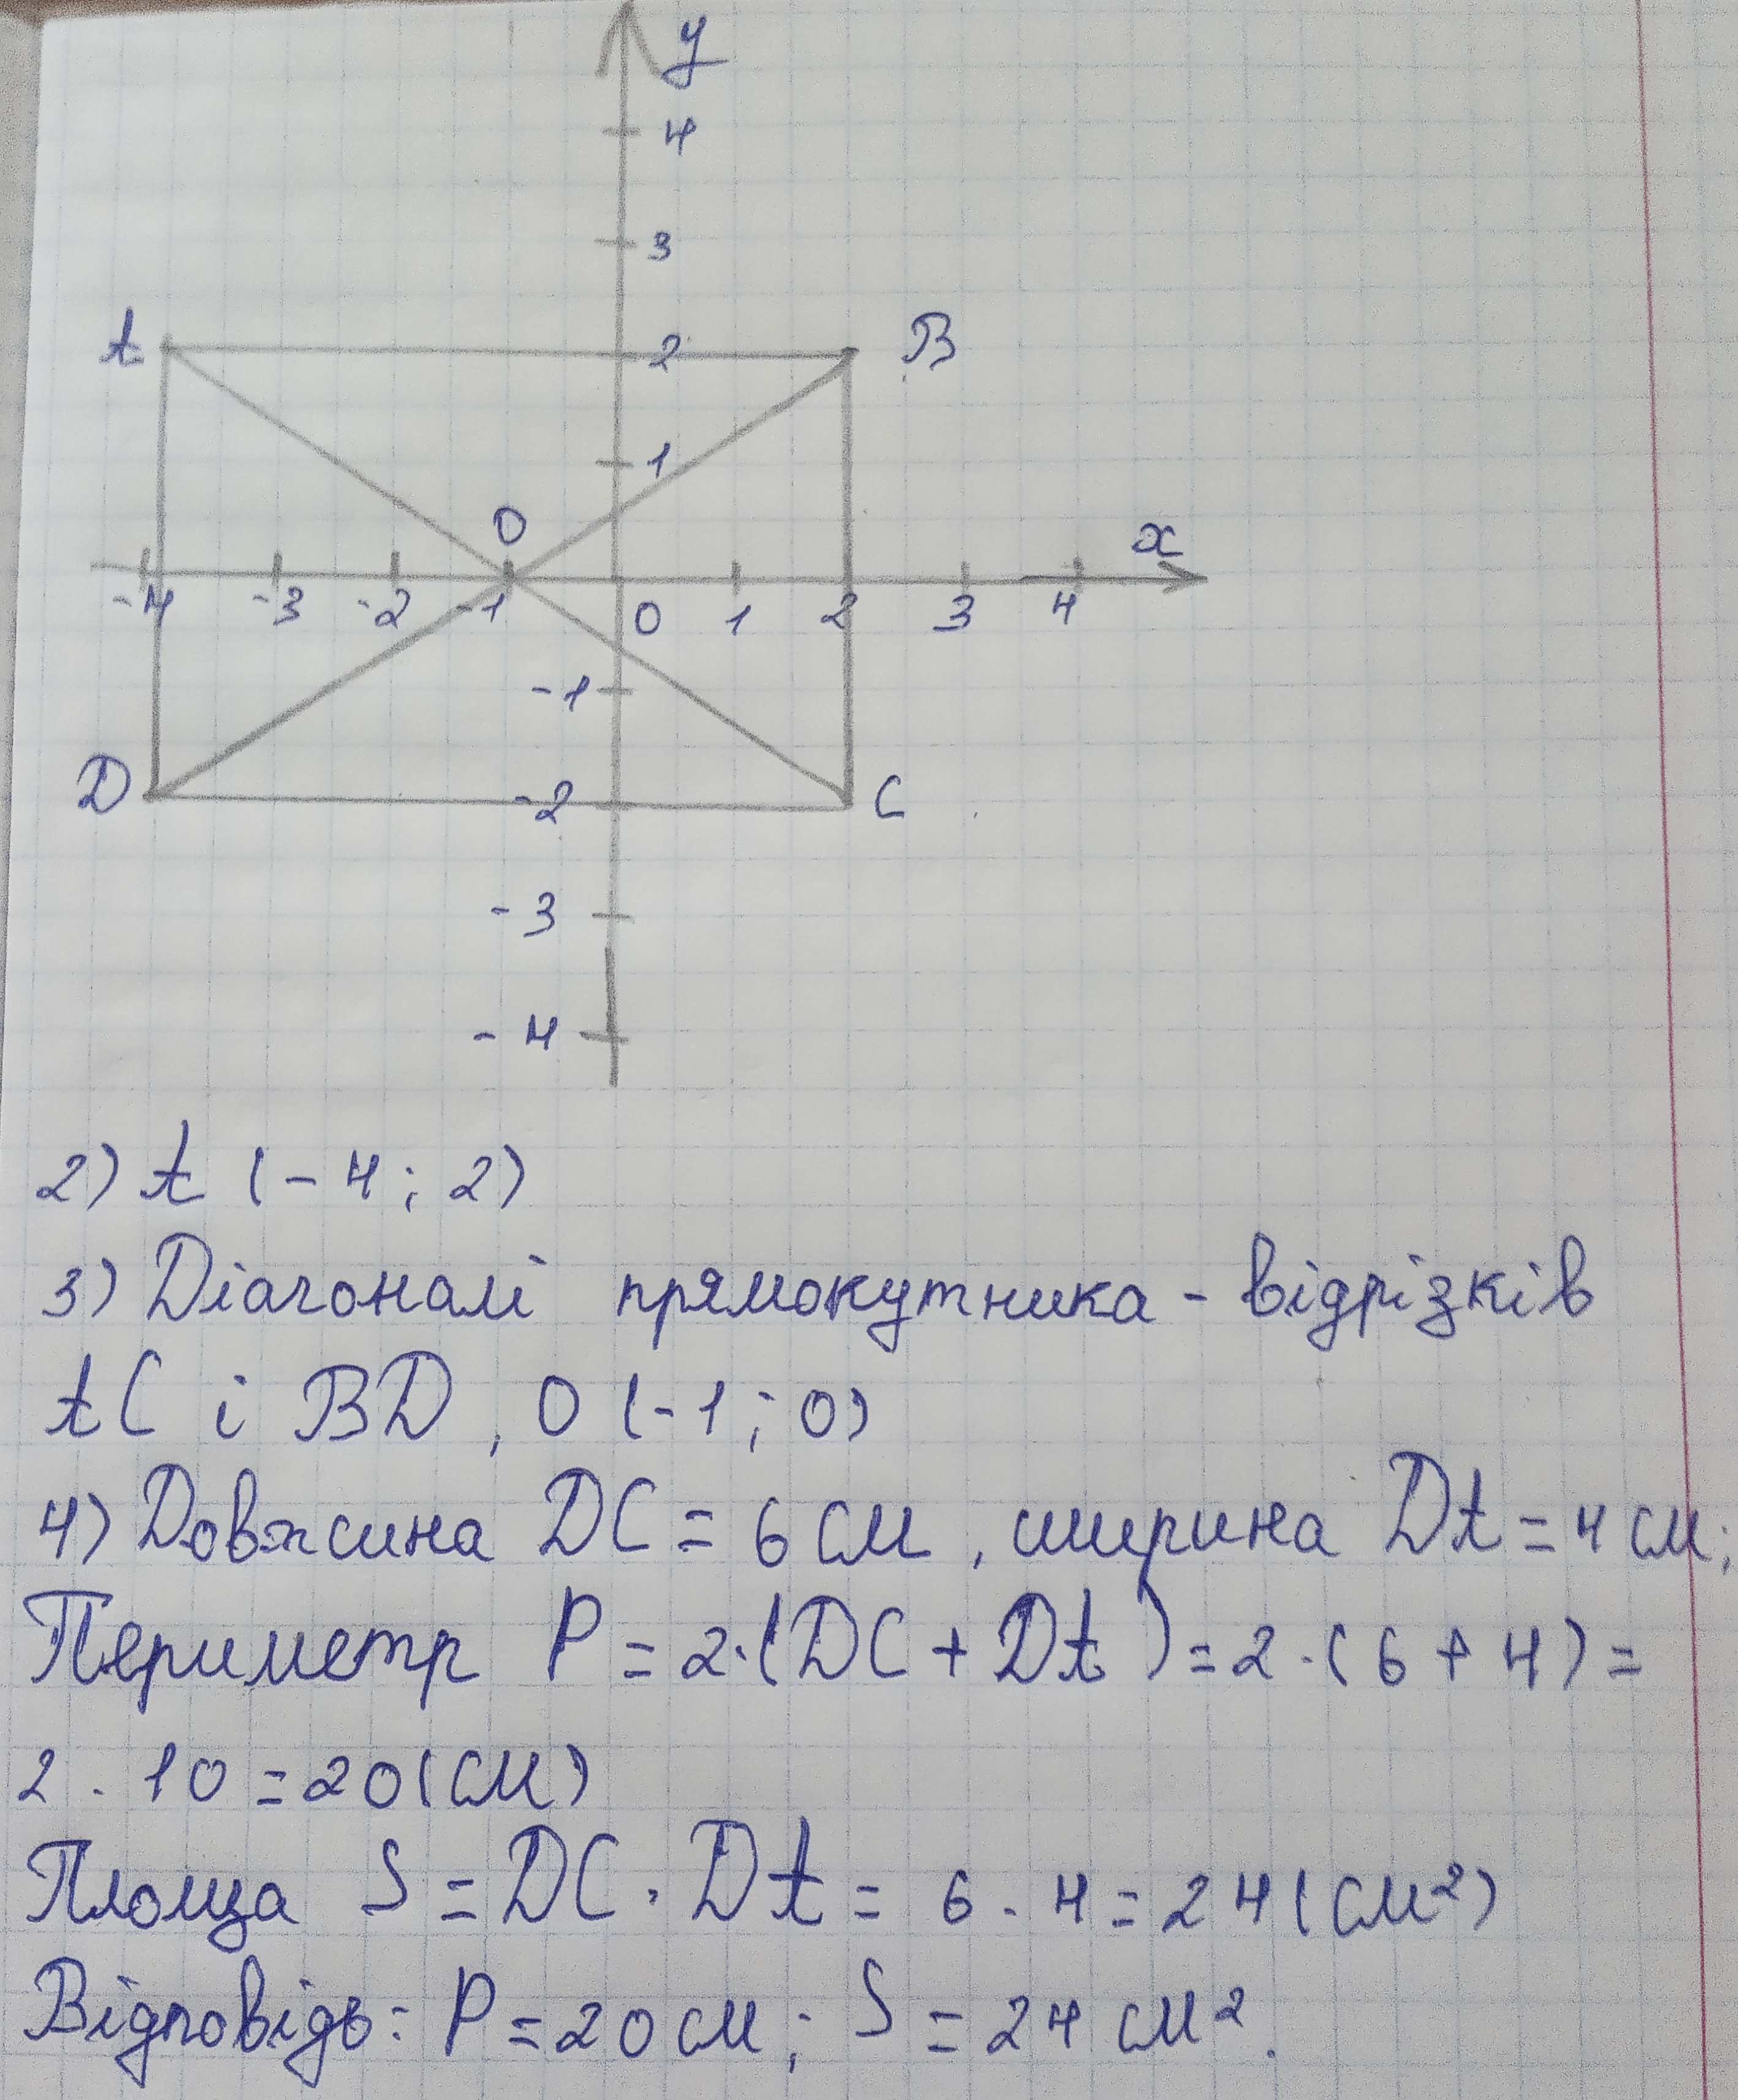 y
4
3
A 2 B
1
O x
-4 -3 -2 -1 0 1 2 3 4
-1
D -2 C
-3
-4
2) A (-4; 2)
3) Діагоналі прямокутника - відрізків
AC і BD, O (-1; 0)
4) Довжина DC = 6 см, ширина DA = 4 см;
Периметр P = 2·(DC + DA) = 2·(6 + 4) =
2 · 10 = 20 (см)
Площа S = DC · DA = 6 · 4 = 24 (см²)
Відповідь: P = 20 см; S = 24 см².